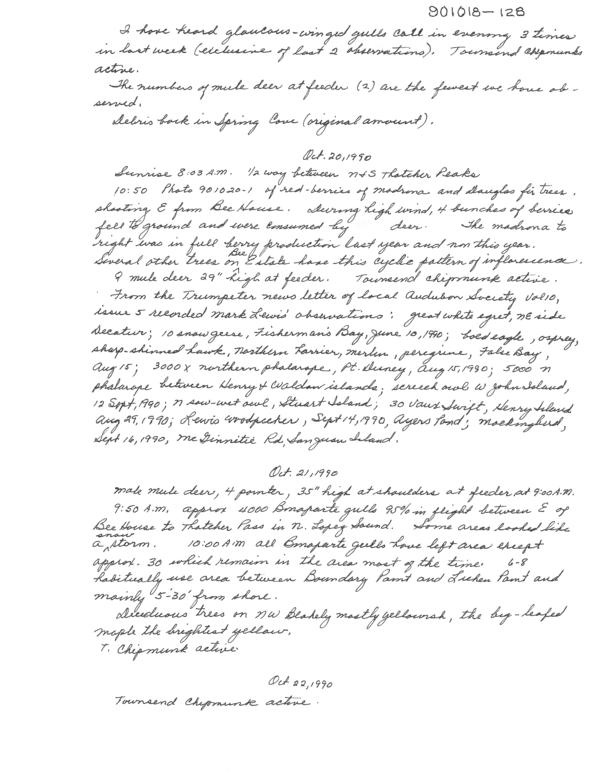 901018-128
I have heard glaucous-winged gulls call in evening 3 times
in last week (exclusive of last 2 observations). Townsend chipmunks
active.
The numbers of mule deer at feeder (2) are the fewest we have ob-
served.
Debris back in Spring Cove (original amount).
Oct. 20, 1990
Sunrise 8:03 A.M. 1/2 way between N & S Thatcher Peaks
10:50 Photo 901020-1 of red-berries of madrona and Douglas fir trees,
shooting E from Bee House. During high wind, 4 bunches of berries
fell to ground and were consumed by deer. The madrona to
right was in full berry production last year and non this year.
Several other trees on Bee Estate have this cyclic pattern of inflorescence.
♀ mule deer 29" high at feeder. Townsend chipmunk active.
From the Trumpeter news letter of local Audubon Society Vol 10,
issue 5 recorded Mark Lewis' observations: great white egret, NE side
Decatur; 10 snow geese, Fisherman's Bay, June 10, 1990; bald eagle, osprey,
sharp-shinned hawk, Northern harrier, merlin, peregrine, False Bay,
Aug 15; 3000 X northern phalarope, Pt. Disney, Aug 15, 1990; 5000 n
phalarope between Henry & Waldon islands; screech owl W John Island,
12 Sept, 1990; n saw-wet owl, Stuart Island; 30 Vaux Swift, Henry Island
Aug 29, 1990; Lewis Woodpecker, Sept 14, 1990, Ayers Pond; mockingbird,
Sept 16, 1990, Mc Ginnetie Rd, San Juan Island.
Oct. 21, 1990
Male mule deer, 4 pointer, 35" high at shoulders at feeder at 9:00 A.M.
9:50 A.M. approx 4000 Bonaparte gulls 95% in flight between E of
Bee House to Thatcher Pass in N. Lopez Sound. Some areas looked like
a snow storm. 10:00 A.M all Bonaparte gulls have left area except
approx. 30 which remain in the area most of the time. 6-8
habitually use area between Boundary Point and Lichen Point and
mainly 5'-30' from shore.
Deciduous trees on NW Blakely mostly yellowish, the big-leafed
maple the brightest yellow.
T. Chipmunk active.
Oct 22, 1990
Townsend Chipmunk active.